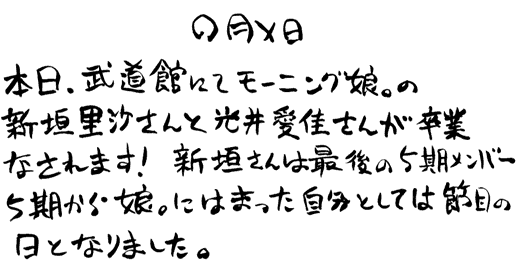 〇月×日
本日、武道館にてモーニング娘。の
新垣里沙さんと光井愛佳さんが卒業
なされます! 新垣さんは最後の5期メンバー
5期から娘。にはまった自分としては節目の
日となりました。